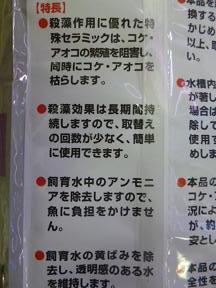 【特長】
●殺藻作用に優れた特
殊セラミックは、コケ・
アオコの繁殖を阻害し、
同時にコケ・アオコを
枯らします。
●殺藻効果は長期間持
続しますので、取替え
の回数が少なく、簡単
に使用できます。
●飼育水中のアンモニ
アを除去しますので、
魚に負担をかけませ
ん。
●飼育水の黄ばみを除
去し、透明感のある水
を維持します。
本品を
換する
かじめ
以上、取
●水槽内
が著し
場合は
除して
使用す
めしま
●本品の
コケ・ア
況によ
が、約
変と
●本品の
全性を